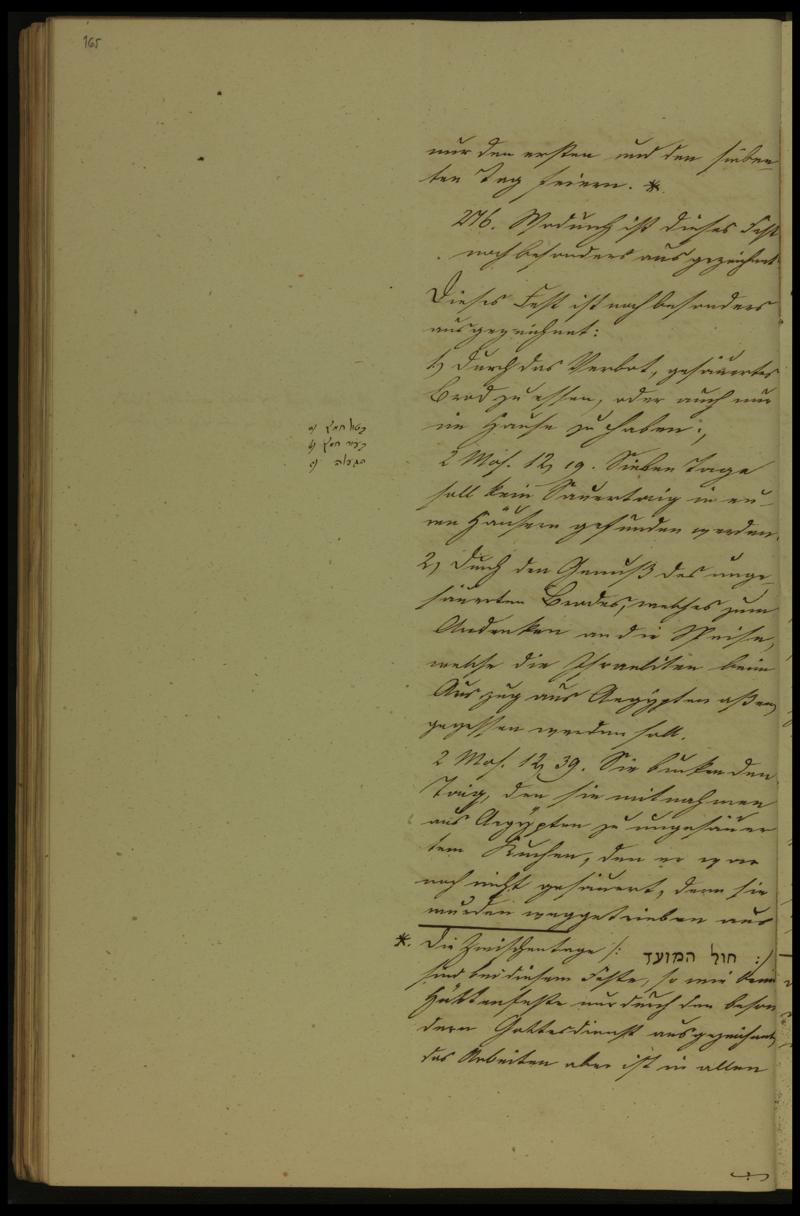 165
nur den ersten und den sieben-
ten Tag feiern. *
276. Wodurch ist dieses Fest
noch besonders ausgezeichnet
Dieses Fest ist noch besonders
ausgezeichnet:
1) Durch das Verbot, gesäuertes
Brod zu essen, oder auch nur
im Hause zu haben;
ביטול חמץ a)
ביעור חמץ b)
הגעלה c)
2 Mos. 12, 19. Sieben Tage
soll kein Sauertaig in eu-
ren Häusern gefunden werden.
2, Durch den Genuß des unge-
säuerten Brodes, welches zum
Andenken an die Speise,
welche die Israeliten beim
Auszug aus Aegÿpten aßen,
gegessen werden soll.
2 Mos. 12, 39. Sie bucken den
Taig, den sie mitnahmen
aus Aegÿpten zu ungesäuer
tem Kuchen, den er war
noch nicht gesäuert, denn sie
wurden weggetrieben aus
*. Die Zwischentage /: חול המועד :/
sind bei diesem Feste, so wie beim
Hüttenfeste nur durch den beson
dern Gottesdienst ausgezeichnet,
das Arbeiten aber ist in allen